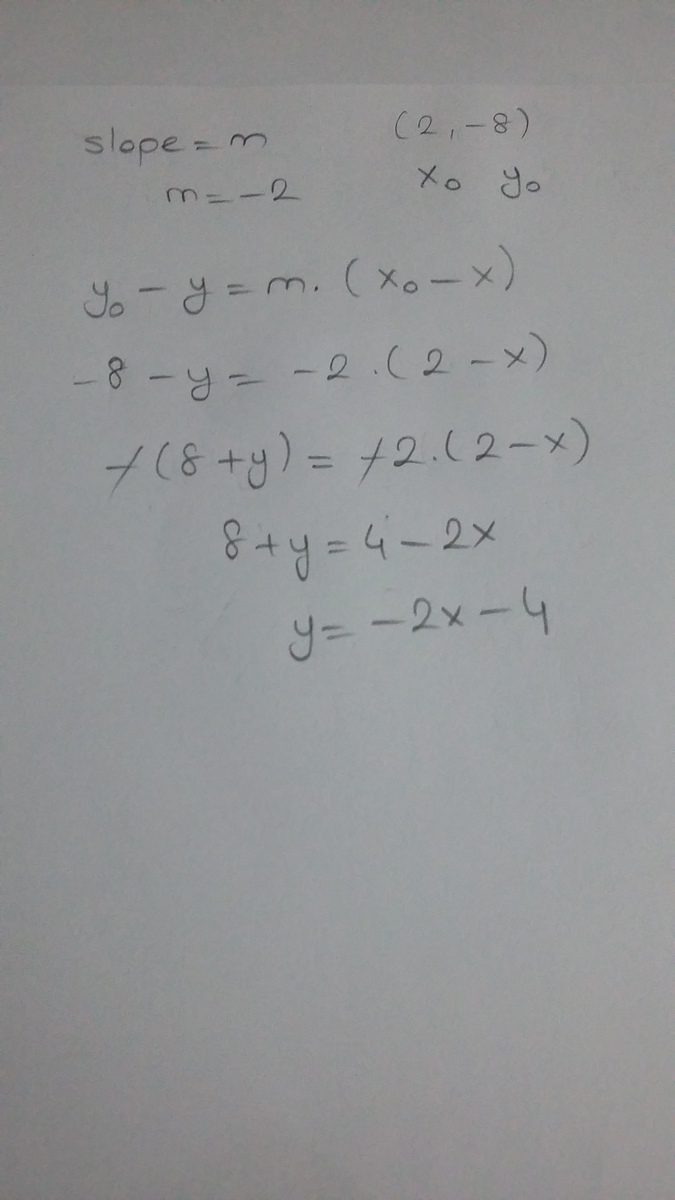 slope = m (2, -8)
m = -2 x₀ y₀
y₀ - y = m. (x₀ - x)
-8 - y = -2 .( 2 - x)
-(8 + y) = -2.( 2 - x)
8 + y = 4 - 2x
y = -2x - 4